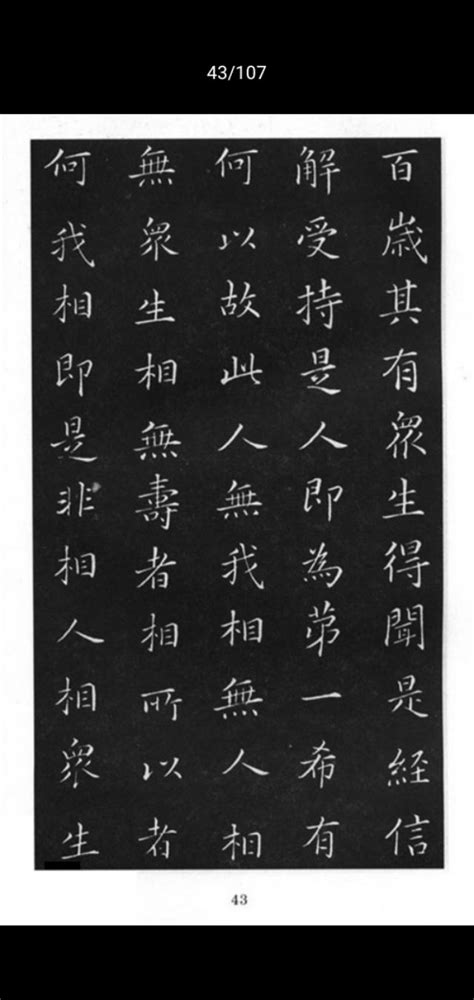 43/107
百歲其有眾生得聞是経信
解受持是人即為苐一希有
何以故此人無我相無人相
無眾生相無壽者相所以者
何我相即是非相人相眾生
43